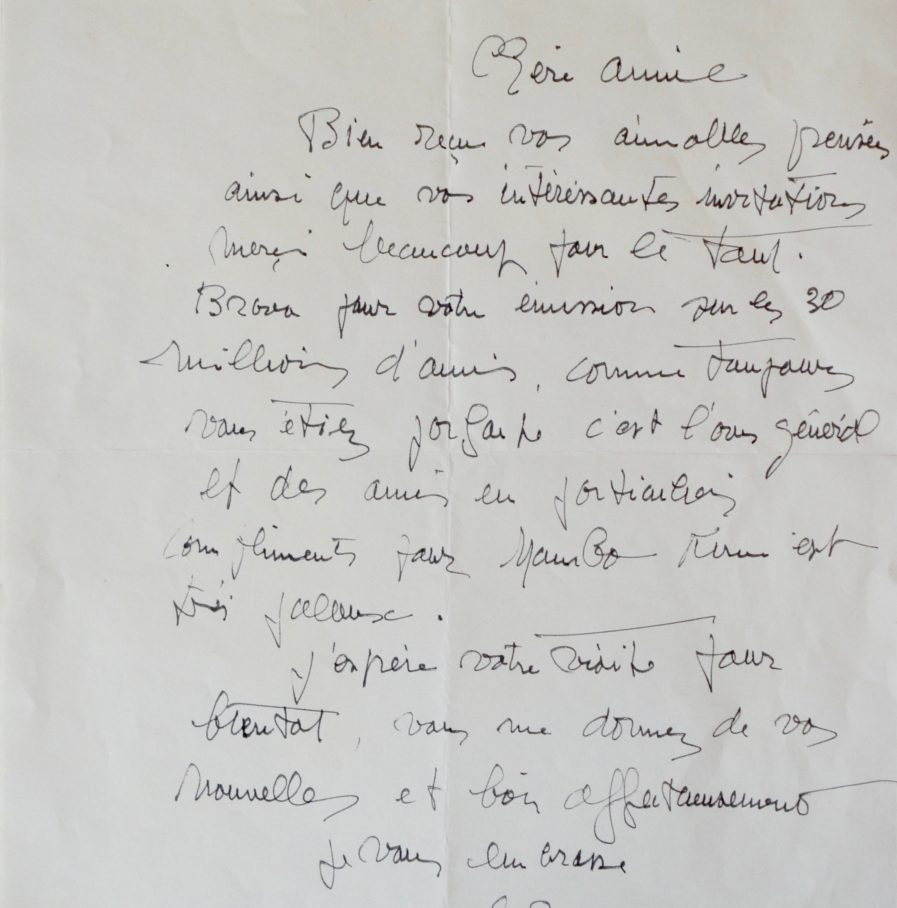 Chère Annie
Bien reçu vos aimables pensées
ainsi que vos intéressantes invitations
Merçi beaucoup pour le tout.
Bravo pour votre émission sur les 30
millions d'amis, comme toujours
vous étiez parfaite c'est l'avis général
et des amis en particulier
Compliments pour Mambo est
très jalouse.
J'espère votre visite pour
bientot, vous me donnez de vos
nouvelles et bien affectueusement
je vous embrasse